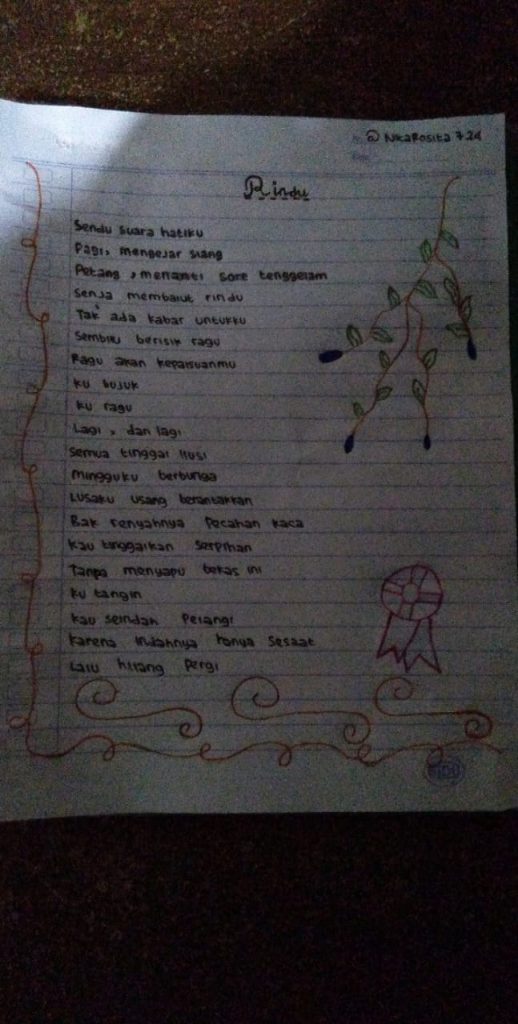 @NikaRosita724
Rindu
Sendu suara hatiku
Pagi, mengejar siang
Petang, menanti sore tenggelam
Senja membalut rindu
Tak ada kabar untukku
Sembilu berisik ragu
Ragu akan kepalsuanmu
Ku bujuk
Ku ragu
Lagi, dan lagi
Semua tinggal ilusi
Mingguku berbunga
Lusaku usang berantakkan
Bak renyahnya pecahan kaca
Kau tinggalkan serpihan
Tanpa menyapu bekas ini
Ku tangin
Kau seindah pelangi
Karena indahnya hanya sesaat
Lalu hilang pergi